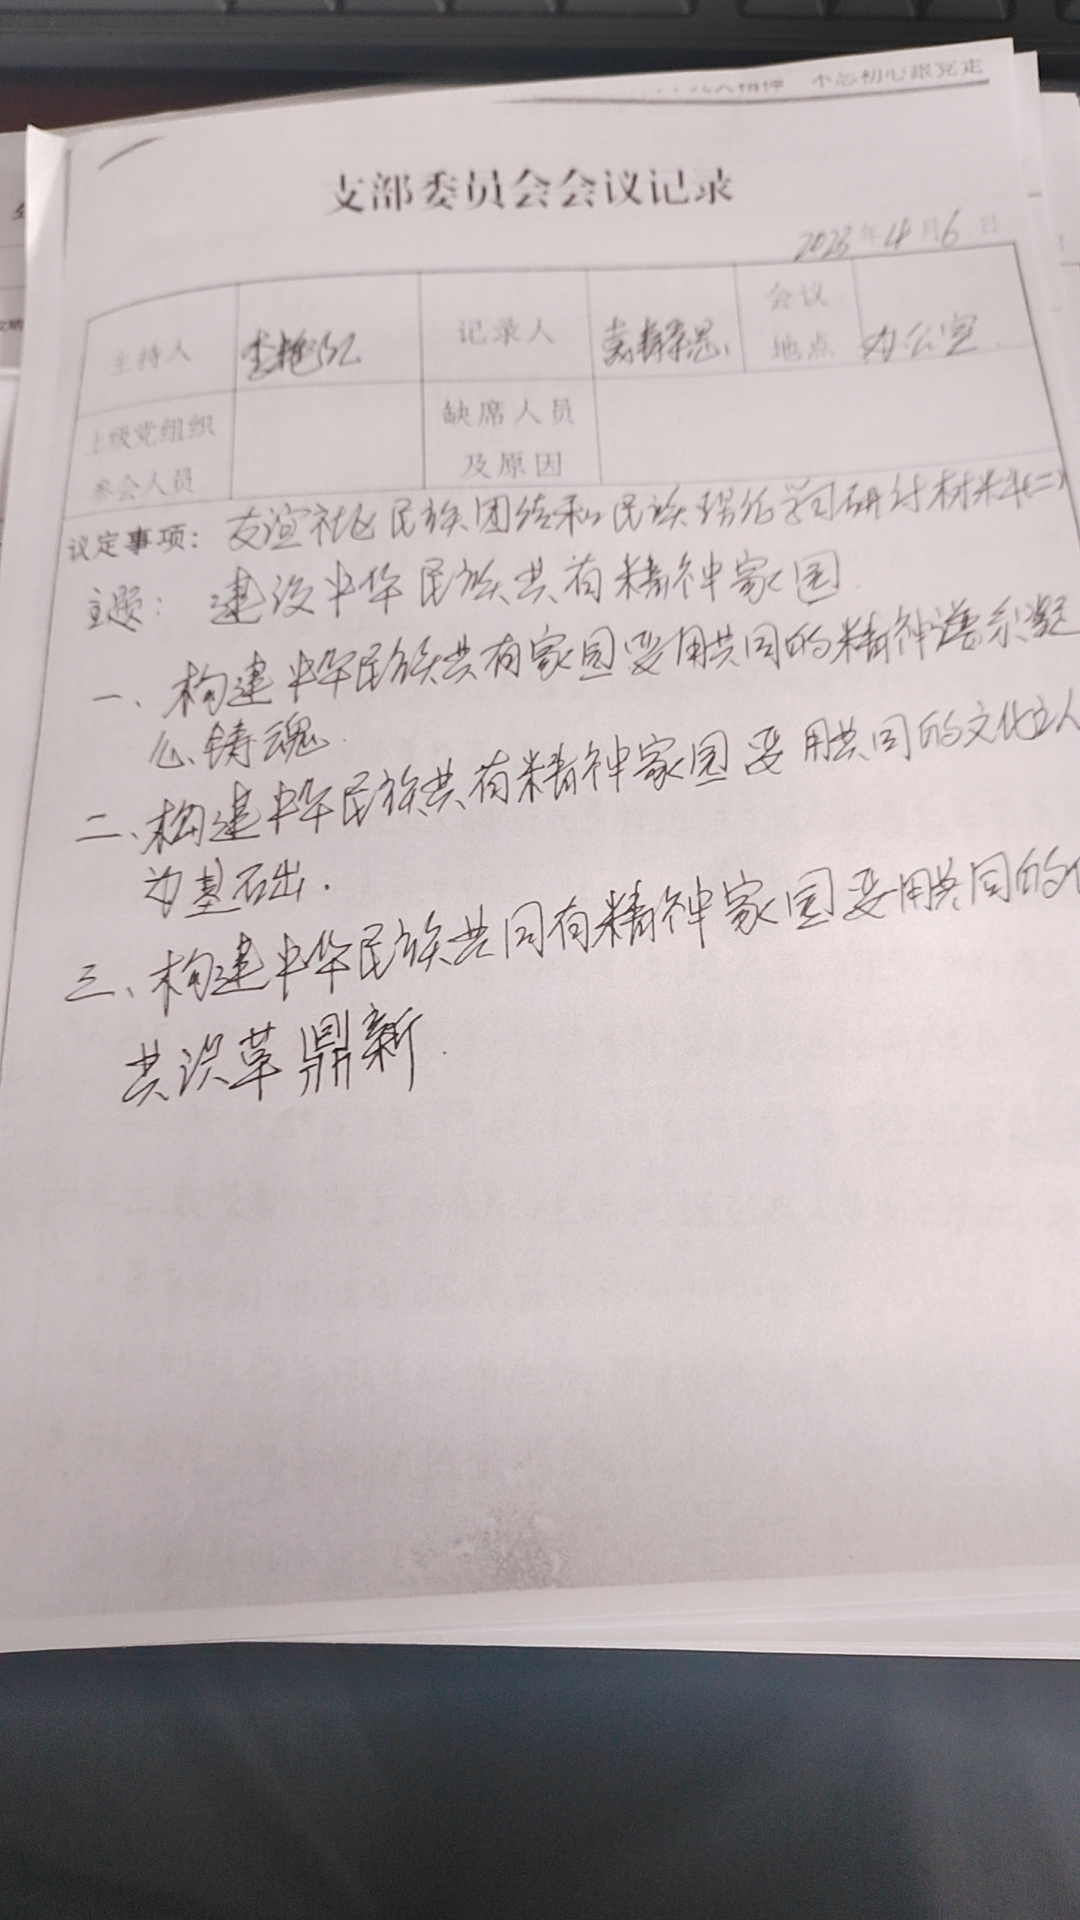 不忘初心跟党走
支部委员会会议记录
2023年4月6日
主持人 李艳红 记录人 会议地点 办公室
上级党组织参会人员 缺席人员及原因
议定事项：友谊社区民族团结和民族理论学习研讨材料(二)
主题：建设中华民族共有精神家园
一、构建中华民族共有家园要用共同的精神谱系凝
心铸魂.
二、构建中华民族共有精神家园要用共同的文化立人
为基础.
三、构建中华民族共同有精神家园要用共同的
共识革鼎新.